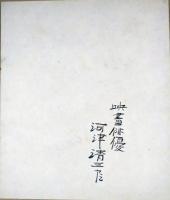 映畫俳優
河津清三郎